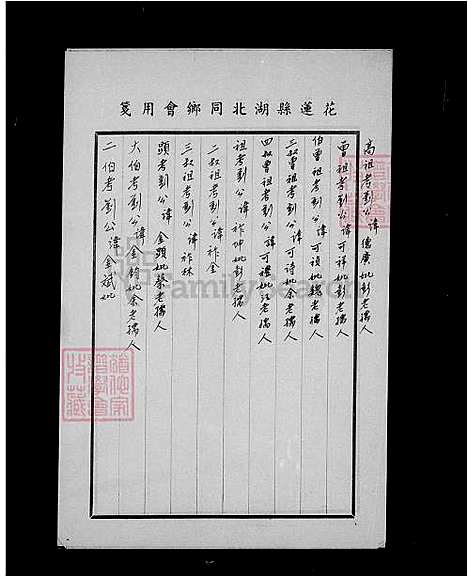 花蓮縣湖北同鄉會用箋
高祖考劉公諱德廣妣彭老孺人
曾祖考劉公諱可祥妣彭老孺人
伯曾祖考劉公諱可禎妣魏老孺人
三叔曾祖考劉公諱可詩妣余老孺人
四叔曾祖考劉公諱可禮妣江老孺人
祖考劉公諱祚坤妣彭老孺人
二叔祖考劉公諱祚金
三叔祖考劉公諱祚林
顯考劉公諱金顯妣蔡老孺人
大伯考劉公諱金鈞妣余老孺人
二伯考劉公諱金斌妣